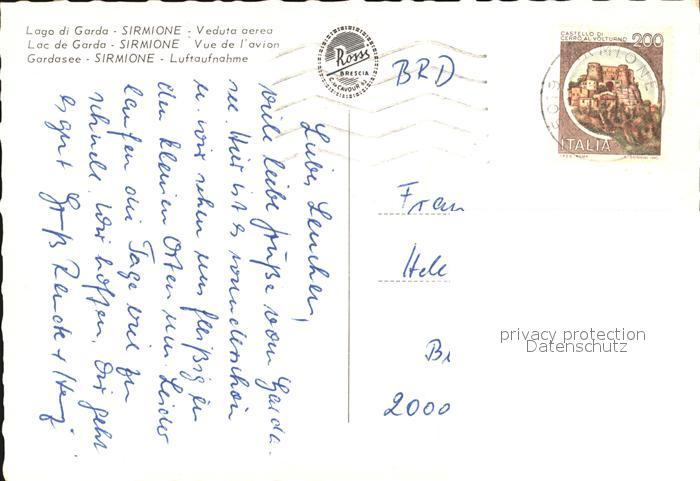 Lago di Garda - SIRMIONE - Veduta aerea
Lac de Garda - SIRMIONE Vue de l'avion
Gardasee - SIRMIONE - Luftaufnahme
Rossi
BRESCIA
C. CAVOUR
BRD
CASTELLO DI
CERRO AL VOLTURNO
200
ITALIA
SIRMIONE
Liebes Lenchen,
Viele liebe Grüße vom Garda-
see. Hier ist es wunderschön
u. wir sehen uns fleißig in
den kleinen Orten um. Leider
laufen die Tage viel zu
schnell. Wir hoffen, Dir geht
es gut. Gruß
Frau
Hele
Br
2000
privacy protection
Datenschutz